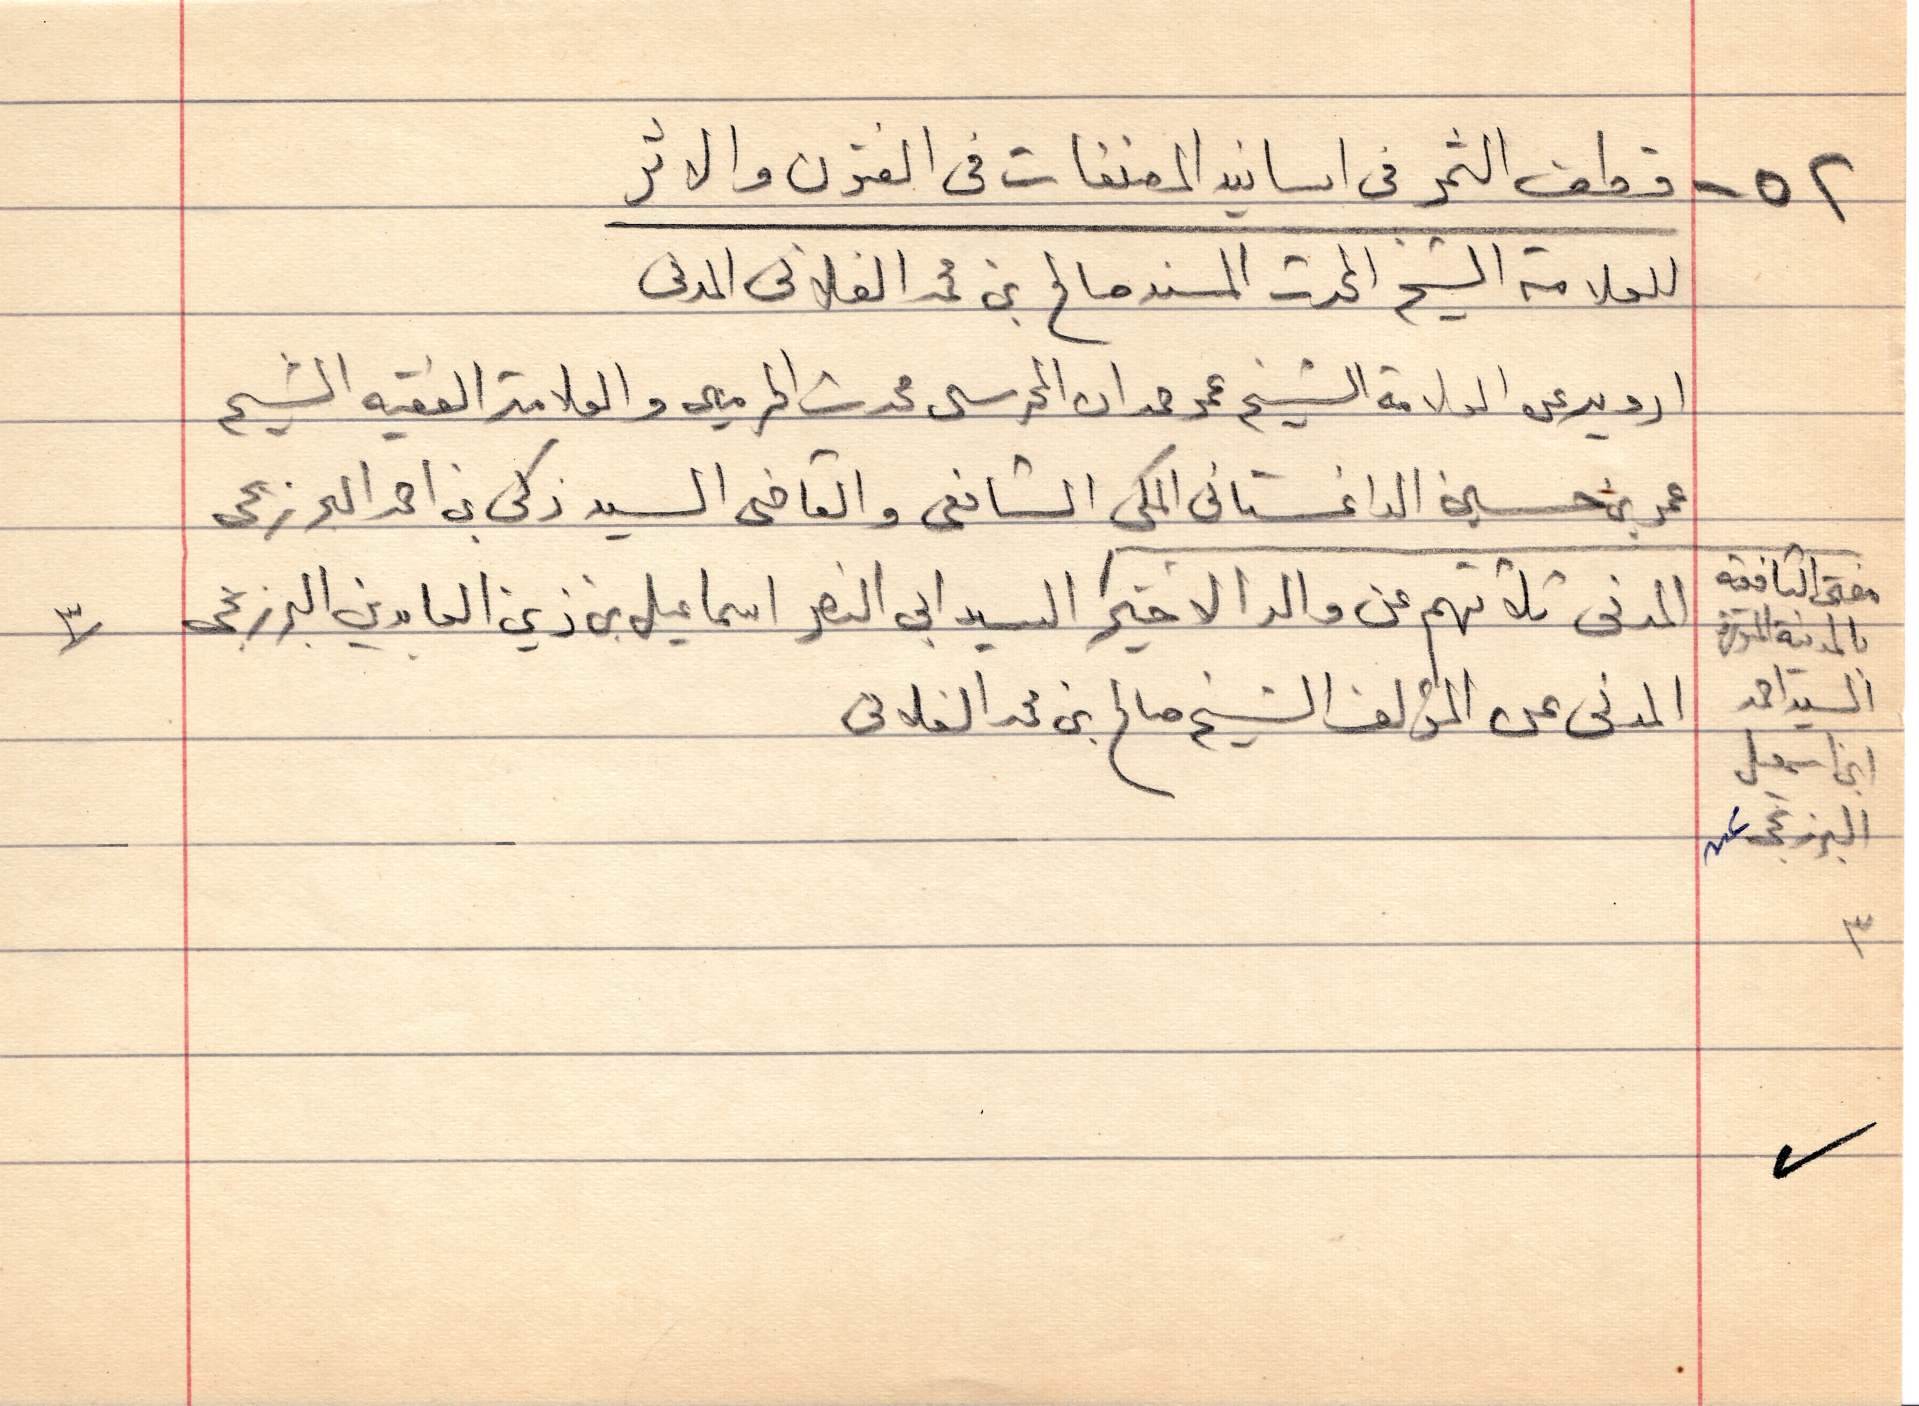 ٥٢- قطف الثمر فى اسانيد المصنفات فى الفنون والاثر
للعلامة الشيخ المحدث المسند صالح بن محمد الفلانى المدنى
ارويه عن العلامة الشيخ عمر حمدان المحرسى محدث الحرمين والعلامة الفقيه الشيخ
عمر بن حسين الداغستانى المكى الشافعى والقاضى السيد زكى بن احمد البرزنجى
المدنى ثلاثتهم عن والد الاخير السيد ابى النصر اسماعيل بن زين العابدين البرزنجى
المدنى عن المؤلف الشيخ صالح بن محمد الفلانى
مفتى الشافعية
بالمدينة المنورة
السيد احمد
ابن اسمعيل
البرزنجى عن
٣
٣